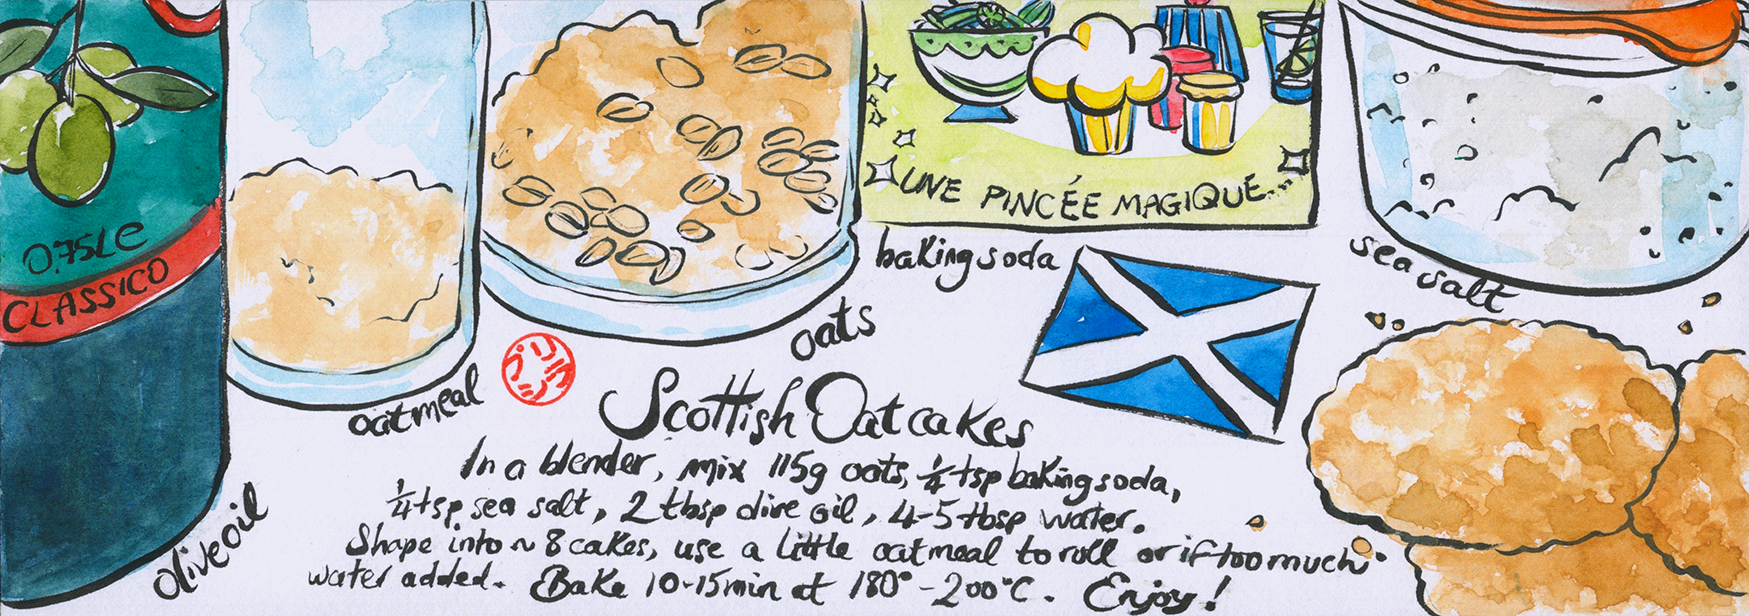 0.75L e
CLASSICO
olive oil
oatmeal
oats
UNE PINCÉE MAGIQUE...
baking soda
sea salt
プリ
シラ
Scottish Oatcakes
In a blender, mix 115g oats, 1/4 tsp baking soda,
1/4 tsp sea salt, 2 tbsp olive oil, 4-5 tbsp water.
Shape into ~ 8 cakes, use a little oatmeal to roll or if too much
water added. Bake 10-15min at 180°-200°C. Enjoy!